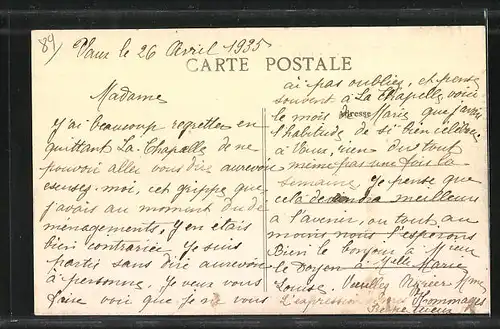 89)
Vaux le 26 Avril 1935
CARTE POSTALE
Madame
J'ai beaucoup regretter en
quittant La Chapelle de ne
pouvoir aller vous dire aurevoir
escusez-moi, cet grippe que
j'avais au moment du dé
ménagements, j'en étais
bien contrariée je suis
partis sans dire aurevoir
à personne, Je veux vous
faire voir que je ne vous
ai pas oubliez, et pense
souvent à La Chapelle, voici
le mois Adresse Marie que j'avais
l'habitude de si bien célébrer
à Vaux, rien du tout
même pas une fois la
semaine, je pense que
cela deviendra meilleurs
à l'avenir, ou tout au
moins nous l'espérons
Bien le bonjour à
le Doyen à Melle Marie
Louise. Veuillez Mme
L'expression Hommages